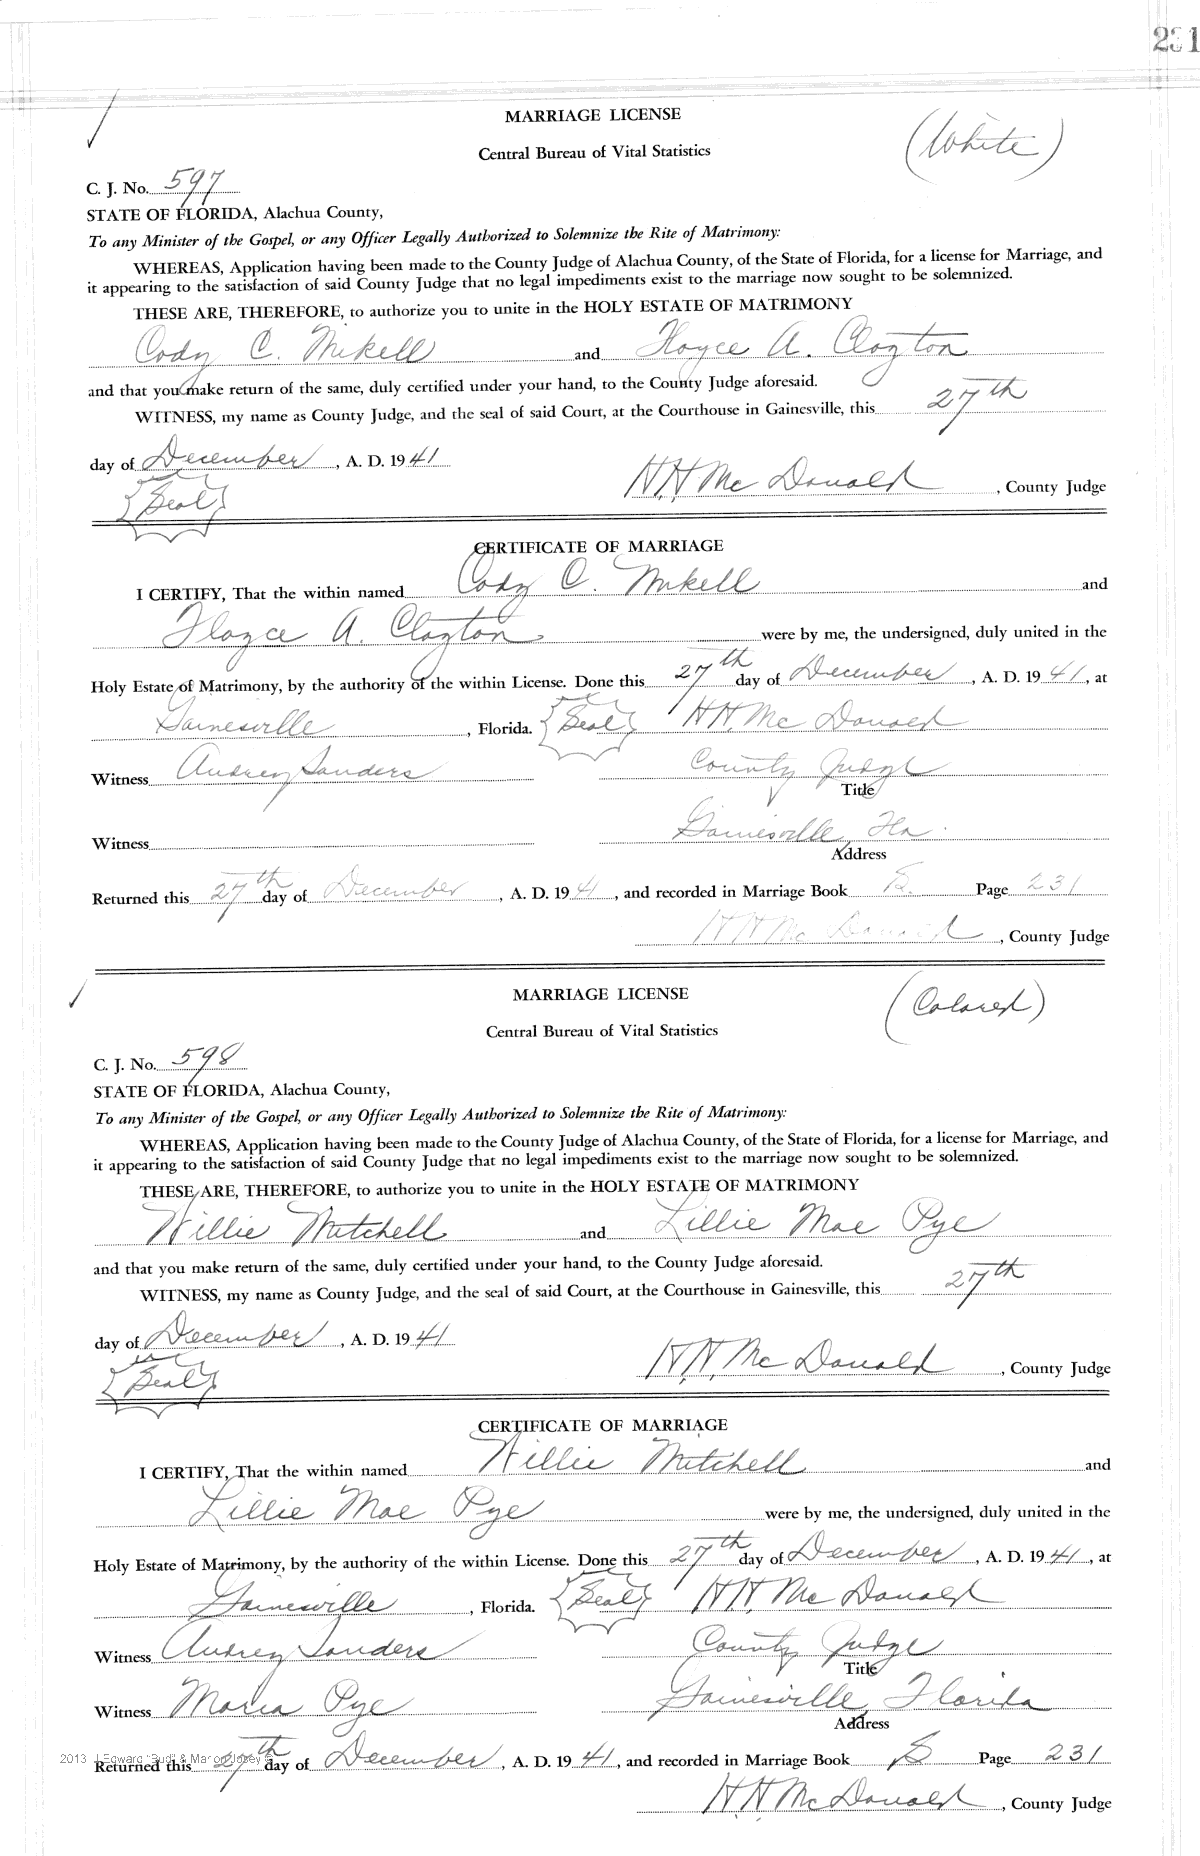 231
MARRIAGE LICENSE
(White)
Central Bureau of Vital Statistics
C. J. No. 597
STATE OF FLORIDA, Alachua County,
To any Minister of the Gospel, or any Officer Legally Authorized to Solemnize the Rite of Matrimony:
WHEREAS, Application having been made to the County Judge of Alachua County, of the State of Florida, for a license for Marriage, and
it appearing to the satisfaction of said County Judge that no legal impediments exist to the marriage now sought to be solemnized.
THESE ARE, THEREFORE, to authorize you to unite in the HOLY ESTATE OF MATRIMONY
Cody C. Mikell and Floyce A. Clayton
and that you make return of the same, duly certified under your hand, to the County Judge aforesaid.
WITNESS, my name as County Judge, and the seal of said Court, at the Courthouse in Gainesville, this 27th
day of December, A. D. 1941
{Seal} H. H. McDonald, County Judge
CERTIFICATE OF MARRIAGE
I CERTIFY, That the within named Cody C. Mikell and
Floyce A. Clayton were by me, the undersigned, duly united in the
Holy Estate of Matrimony, by the authority of the within License. Done this 27th day of December, A. D. 1941, at
Gainesville, Florida. {Seal} H. H. McDonald
Witness Audrey Sanders County Judge
Title
Witness Gainesville, Fla.
Address
Returned this 27th day of December, A. D. 1941, and recorded in Marriage Book S. Page 231
H H McDonald, County Judge
MARRIAGE LICENSE
(Colored)
Central Bureau of Vital Statistics
C. J. No. 598
STATE OF FLORIDA, Alachua County,
To any Minister of the Gospel, or any Officer Legally Authorized to Solemnize the Rite of Matrimony:
WHEREAS, Application having been made to the County Judge of Alachua County, of the State of Florida, for a license for Marriage, and
it appearing to the satisfaction of said County Judge that no legal impediments exist to the marriage now sought to be solemnized.
THESE ARE, THEREFORE, to authorize you to unite in the HOLY ESTATE OF MATRIMONY
Willie Mitchell and Lillie Mae Pye
and that you make return of the same, duly certified under your hand, to the County Judge aforesaid.
WITNESS, my name as County Judge, and the seal of said Court, at the Courthouse in Gainesville, this 27th
day of December, A. D. 1941
{Seal} H. H. McDonald, County Judge
CERTIFICATE OF MARRIAGE
I CERTIFY, That the within named Willie Mitchell and
Lillie Mae Pye were by me, the undersigned, duly united in the
Holy Estate of Matrimony, by the authority of the within License. Done this 27th day of December, A. D. 1941, at
Gainesville, Florida. {Seal} H. H. McDonald
Witness Audrey Sanders County Judge
Title
Witness Maria Pye Gainesville, Florida
Address
2013 J Edward "Bud" & Marion Josey
Returned this 27th day of December, A. D. 1941, and recorded in Marriage Book S Page 231
H H McDonald, County Judge